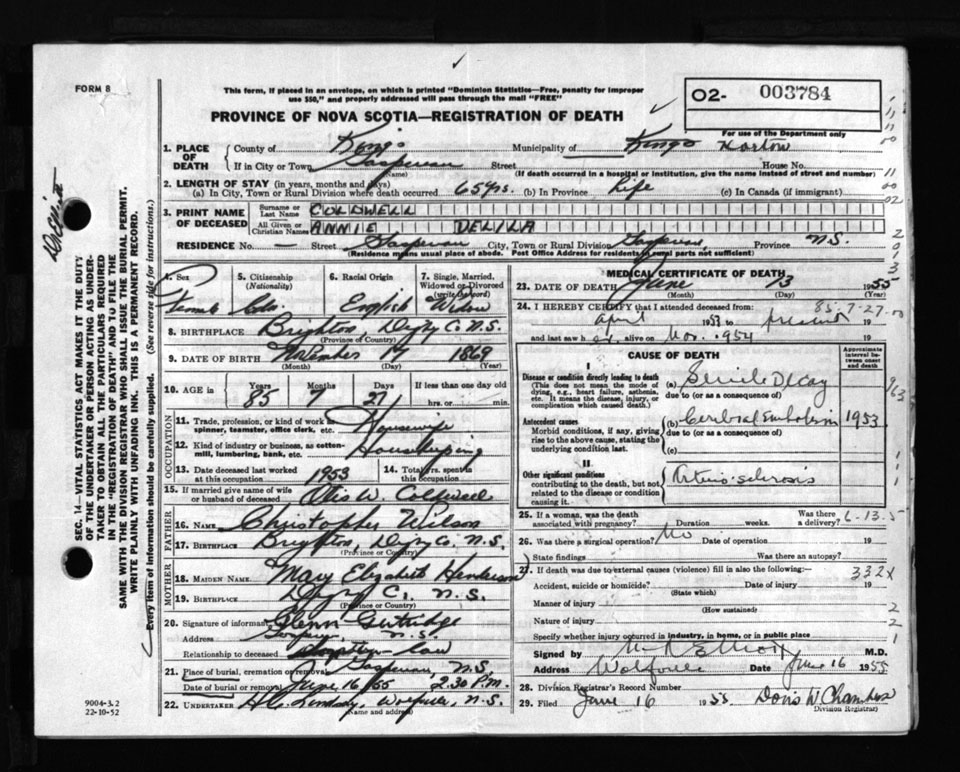 FORM 8
This form, if placed in an envelope, on which is printed "Dominion Statistics—Free, penalty for improper
use $50," and properly addressed will pass through the mail "FREE"
02- 003784
For use of the Department only
PROVINCE OF NOVA SCOTIA—REGISTRATION OF DEATH
1. PLACE OF DEATH
County of Kings Municipality of Kings Horton
If in City or Town Gaspereau Street House No.
(Name) (If death occurred in a hospital or institution, give the name instead of street and number)
2. LENGTH OF STAY (in years, months and days)
(a) In City, Town or Rural Division where death occurred 65 yrs. (b) In Province Life (c) In Canada (if immigrant)
3. PRINT NAME OF DECEASED
Surname or Last Name COLDWELL
All Given or Christian Names ANNIE DELILA
RESIDENCE No. — Street Gaspereau City, Town or Rural Division Gaspereau, Province N.S.
(Residence means usual place of abode. Post Office Address for residents in rural parts not sufficient)
4. Sex
Female
5. Citizenship
(Nationality)
Cdn.
6. Racial Origin
English
7. Single, Married,
Widowed or Divorced
(write the word)
Widow
8. BIRTHPLACE Brighton, Digby Co. N.S.
(Province or Country)
9. DATE OF BIRTH November 17 1869
(Month) (Day)
10. AGE in
Years Months Days If less than one day old
85 7 27 hrs. or min.
OCCUPATION
11. Trade, profession, or kind of work as
spinner, teamster, office clerk, etc. Housewife
12. Kind of industry or business, as cotten-
mill, lumbering, bank, etc. Housekeeping
13. Date deceased last worked
at this occupation 1953
14. Total yrs. spent in
this occupation
15. If married give name of wife
or husband of deceased Otis W. Coldwell
FATHER
16. NAME Christopher Wilson
17. BIRTHPLACE Brighton, Digby Co. N.S.
(Province or Country)
MOTHER
18. MAIDEN NAME Mary Elizabeth Henderson
19. BIRTHPLACE Digby Co. N.S.
(Province or Country)
20. Signature of informant Glenn Gutridge
Address N.S.
Relationship to deceased law
21. Place of burial, cremation or removal Gaspereau, N.S.
Date of burial or removal June 16/55 2.30 P.M.
22. UNDERTAKER Lindsay, Wolfville, N.S.
(Name and address)
MEDICAL CERTIFICATE OF DEATH
23. DATE OF DEATH June 13 1955
(Month) (Day)
24. I HEREBY CERTIFY that I attended deceased from 85-7-27-00
April 1953 to present 19
and last saw her alive on Nov. 1954 19
CAUSE OF DEATH
Approximate
interval be-
tween onset
and death
I
Disease or condition directly leading to death
(This does not mean the mode of
dying, e.g., heart failure, asthenia,
etc. It means the disease, injury, or
complication which caused death.)
(a) Senile Decay
due to (or as a consequence of)
Antecedent causes
Morbid conditions, if any, giving
rise to the above cause, stating the
underlying condition last.
(b) Cerebral Embolism 1953
due to (or as a consequence of)
(c)
II
Other significant conditions
contributing to the death, but not
related to the disease or condition
causing it.
Arterio-sclerosis
25. If a woman, was the death
associated with pregnancy? Duration weeks. Was there
a delivery? 6-13-5
26. Was there a surgical operation? No Date of operation 19
State findings Was there an autopsy?
27. If death was due to external causes (violence) fill in also the following:— 332X
Accident, suicide or homicide? Date of injury 19
(State which)
Manner of injury
(How sustained)
Nature of injury
Specify whether injury occurred in industry, in home, or in public place
Signed by M.D.
Address Wolfville Date June 16 1955
28. Division Registrar's Record Number
29. Filed June 16 1955 Doris W. Chambers
(Division Registrar)
SEC. 14—VITAL STATISTICS ACT MAKES IT THE DUTY
OF THE UNDERTAKER OR PERSON ACTING AS UNDER-
TAKER TO OBTAIN ALL THE PARTICULARS REQUIRED
IN THE "REGISTRATION OF DEATH" AND TO FILE THE
SAME WITH THE DIVISION REGISTRAR WHO SHALL ISSUE THE BURIAL PERMIT.
WRITE PLAINLY WITH UNFADING INK. THIS IS A PERMANENT RECORD.
Every item of information should be carefully supplied. (See reverse side for instructions.)
Dr Elliott
9004-3.2
22-10-52